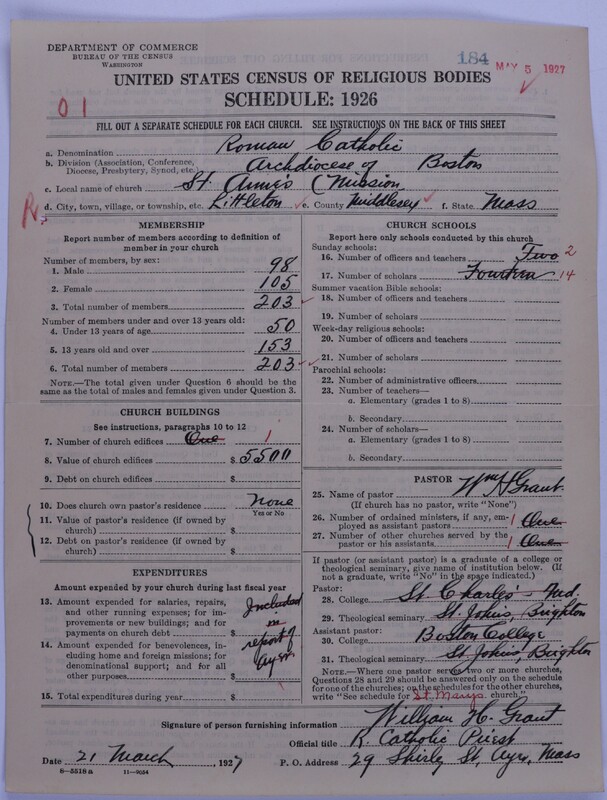 DEPARTMENT OF COMMERCE
BUREAU OF THE CENSUS
WASHINGTON
184
MAY 5 1927
UNITED STATES CENSUS OF RELIGIOUS BODIES
SCHEDULE: 1926
01
FILL OUT A SEPARATE SCHEDULE FOR EACH CHURCH. SEE INSTRUCTIONS ON THE BACK OF THIS SHEET
a. Denomination Roman Catholic
b. Division (Association, Conference, Diocese, Presbytery, Synod, etc.) Archdiocese of Boston
c. Local name of church St. Anne's (Mission
R. d. City, town, village, or township, etc. Littleton e. County Middlesex f. State Mass
MEMBERSHIP
Report number of members according to definition of
member in your church
Number of members, by sex:
1. Male 98
2. Female 105
3. Total number of members 203
Number of members under and over 13 years old:
4. Under 13 years of age 50
5. 13 years old and over 153
6. Total number of members 203
NOTE.—The total given under Question 6 should be
the same as the total of males and females given under Question 3.
CHURCH BUILDINGS
See instructions, paragraphs 10 to 12
7. Number of church edifices One 1
8. Value of church edifices $ 5500
9. Debt on church edifices $
10. Does church own pastor's residence none
Yes or No
11. Value of pastor's residence (if owned by
church) $
12. Debt on pastor's residence (if owned by
church) $
EXPENDITURES
Amount expended by your church during last fiscal year
13. Amount expended for salaries, repairs,
and other running expenses; for im-
provements or new buildings; and for
payments on church debt $ Included in
14. Amount expended for benevolences, in-
cluding home and foreign missions; for
denominational support; and for all
other purposes $ report of Ayer
15. Total expenditures during year $
CHURCH SCHOOLS
Report here only schools conducted by this church
Sunday schools:
16. Number of officers and teachers Two 2
17. Number of scholars Fourteen 14
Summer vacation Bible schools:
18. Number of officers and teachers
19. Number of scholars
Week-day religious schools:
20. Number of officers and teachers
21. Number of scholars
Parochial schools:
22. Number of administrative officers
23. Number of teachers—
a. Elementary (grades 1 to 8)
b. Secondary
24. Number of scholars—
a. Elementary (grades 1 to 8)
b. Secondary
PASTOR
25. Name of pastor Wm H Grant
(If church has no pastor, write "None")
26. Number of ordained ministers, if any, em-
ployed as assistant pastors 1 One
27. Number of other churches served by the
pastor or his assistants 1 One
If pastor (or assistant pastor) is a graduate of a college or
theological seminary, give name of institution below. (If
not a graduate, write "No" in the space indicated.)
Pastor:
28. College St Charles' - Md.
29. Theological seminary St. John's, Brighton
Assistant pastor:
30. College Boston College
31. Theological seminary St John's, Brighton
NOTE.—Where one pastor serves two or more churches,
Questions 28 and 29 should be answered only on the schedule
for one of the churches; on the schedules for the other churches,
write "See schedule for St. Marys church."
Signature of person furnishing information William H. Grant
Official title R. Catholic Priest
Date 21 March, 1927 P. O. Address 29 Shirley St, Ayer, Mass
8—5518a 11—9054